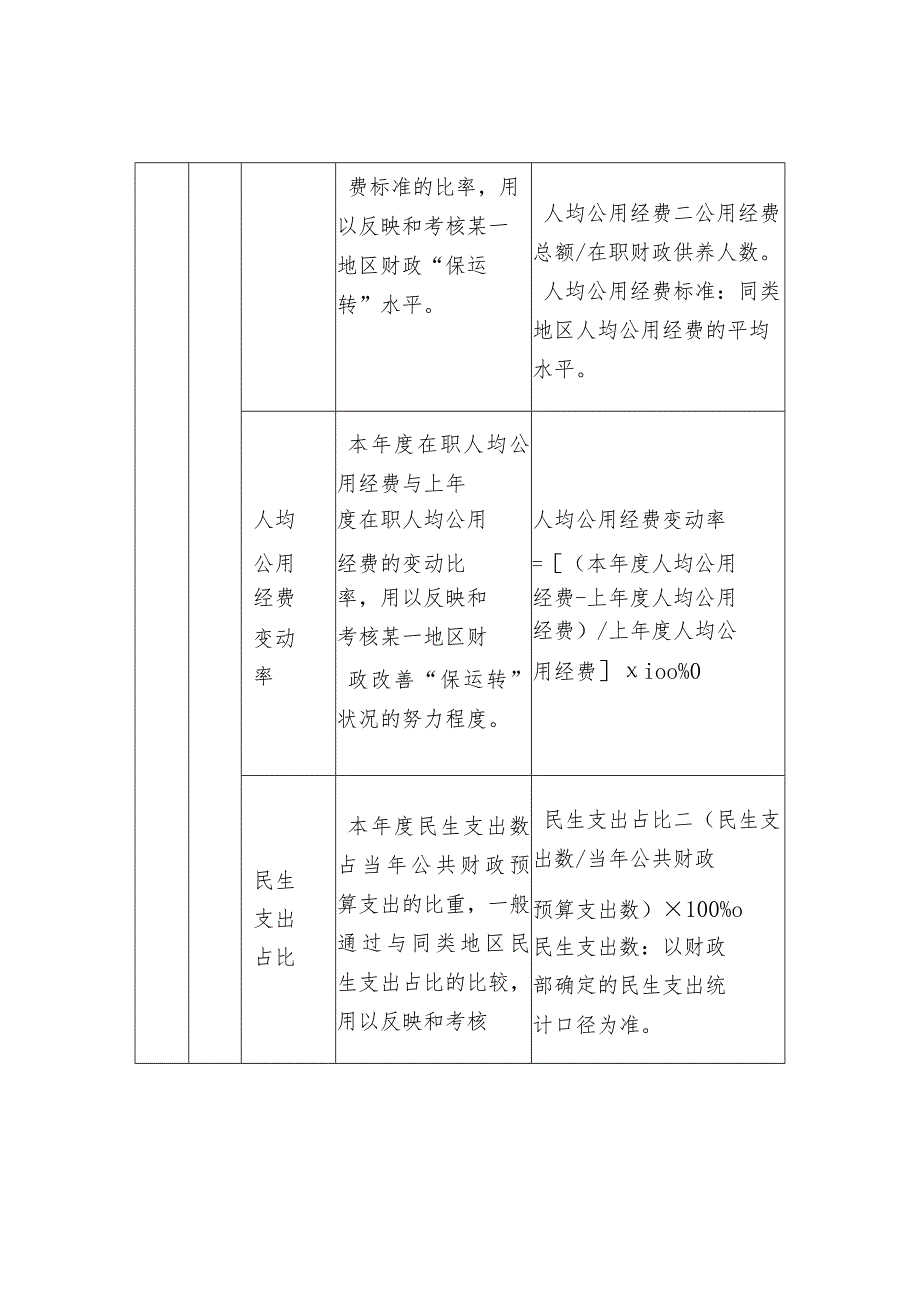 费标准的比率，用
以反映和考核某一
地区财政“保运
转”水平。
人均公用经费二公用经费
总额/在职财政供养人数。
人均公用经费标准：同类
地区人均公用经费的平均
水平。
人均
公用
经费
变动
率
本年度在职人均公
用经费与上年
度在职人均公用
经费的变动比
率，用以反映和
考核某一地区财
政改善“保运转”
状况的努力程度。
人均公用经费变动率
=［（本年度人均公用
经费-上年度人均公用
经费）/上年度人均公
用经费］xioo%0
民生
支出
占比
本年度民生支出数
占当年公共财政预
算支出的比重，一般
通过与同类地区民
生支出占比的比较，
用以反映和考核
民生支出占比二（民生支
出数/当年公共财政
预算支出数）×100%o
民生支出数：以财政
部确定的民生支出统
计口径为准。